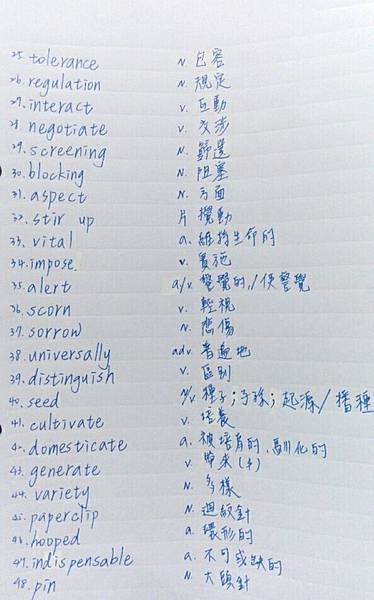 25. tolerance n. 包容
26. regulation n. 規定
27. interact v. 互動
28. negotiate v. 交涉
29. screening n. 篩選
30. blocking n. 阻塞
31. aspect n. 方面
32. stir up 片 攪動
33. vital a. 維持生命的
34. impose v. 實施
35. alert a/v. 警覺的,/使警覺
36. scorn v. 輕視
37. sorrow n. 悲傷
38. universally adv. 普遍地
39. distinguish v. 區別
40. seed n/v. 種子;子孫;起源/播種
41. cultivate v. 培養
42. domesticate a. 被培育的,馴化的
43. generate v. 帶來(子)
44. variety n. 多樣
45. paperclip n. 迴紋針
46. hooped a. 環形的
47. indispensable a. 不可或缺的
48. pin n. 大頭針